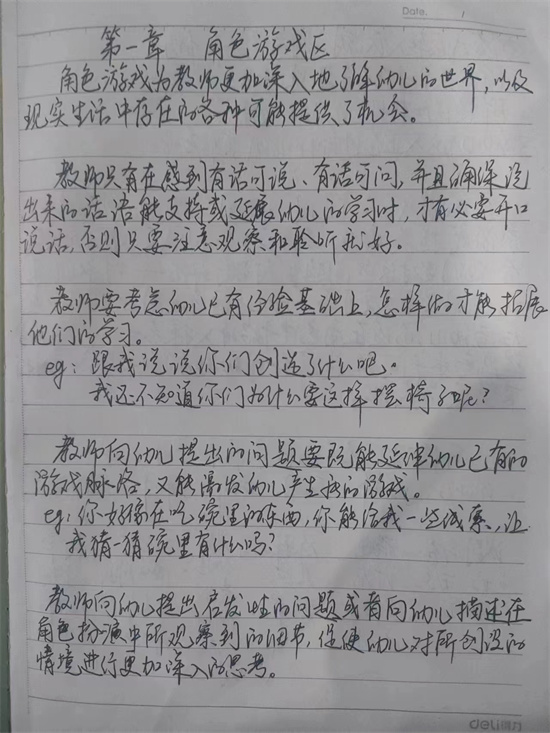 Date. /
第一章 角色游戏区
角色游戏为教师更加深入地了解幼儿的世界,以及
现实生活中存在的各种可能提供了机会。
教师只有在感到有话可说、有话可问,并且确保说
出来的话语能支持或延展幼儿的学习时,才有必要开口
说话,否则只要注意观察和聆听就好。
教师要考虑幼儿已有经验基础上,怎样做才能拓展
他们的学习。
eg:跟我说说你们创造了什么吧。
我还不知道你们为什么要这样摆椅子呢?
教师向幼儿提出的问题要既能延伸幼儿已有的
游戏脉络,又能激发幼儿产生新的游戏。
eg:你好像在吃碗里的东西,你能给我一些线索,让
我猜一猜碗里有什么吗?
教师向幼儿提出启发性的问题或者向幼儿描述在
角色扮演中所观察到的细节,促使幼儿对所创设的
情境进行更加深入的思考。
deli得力